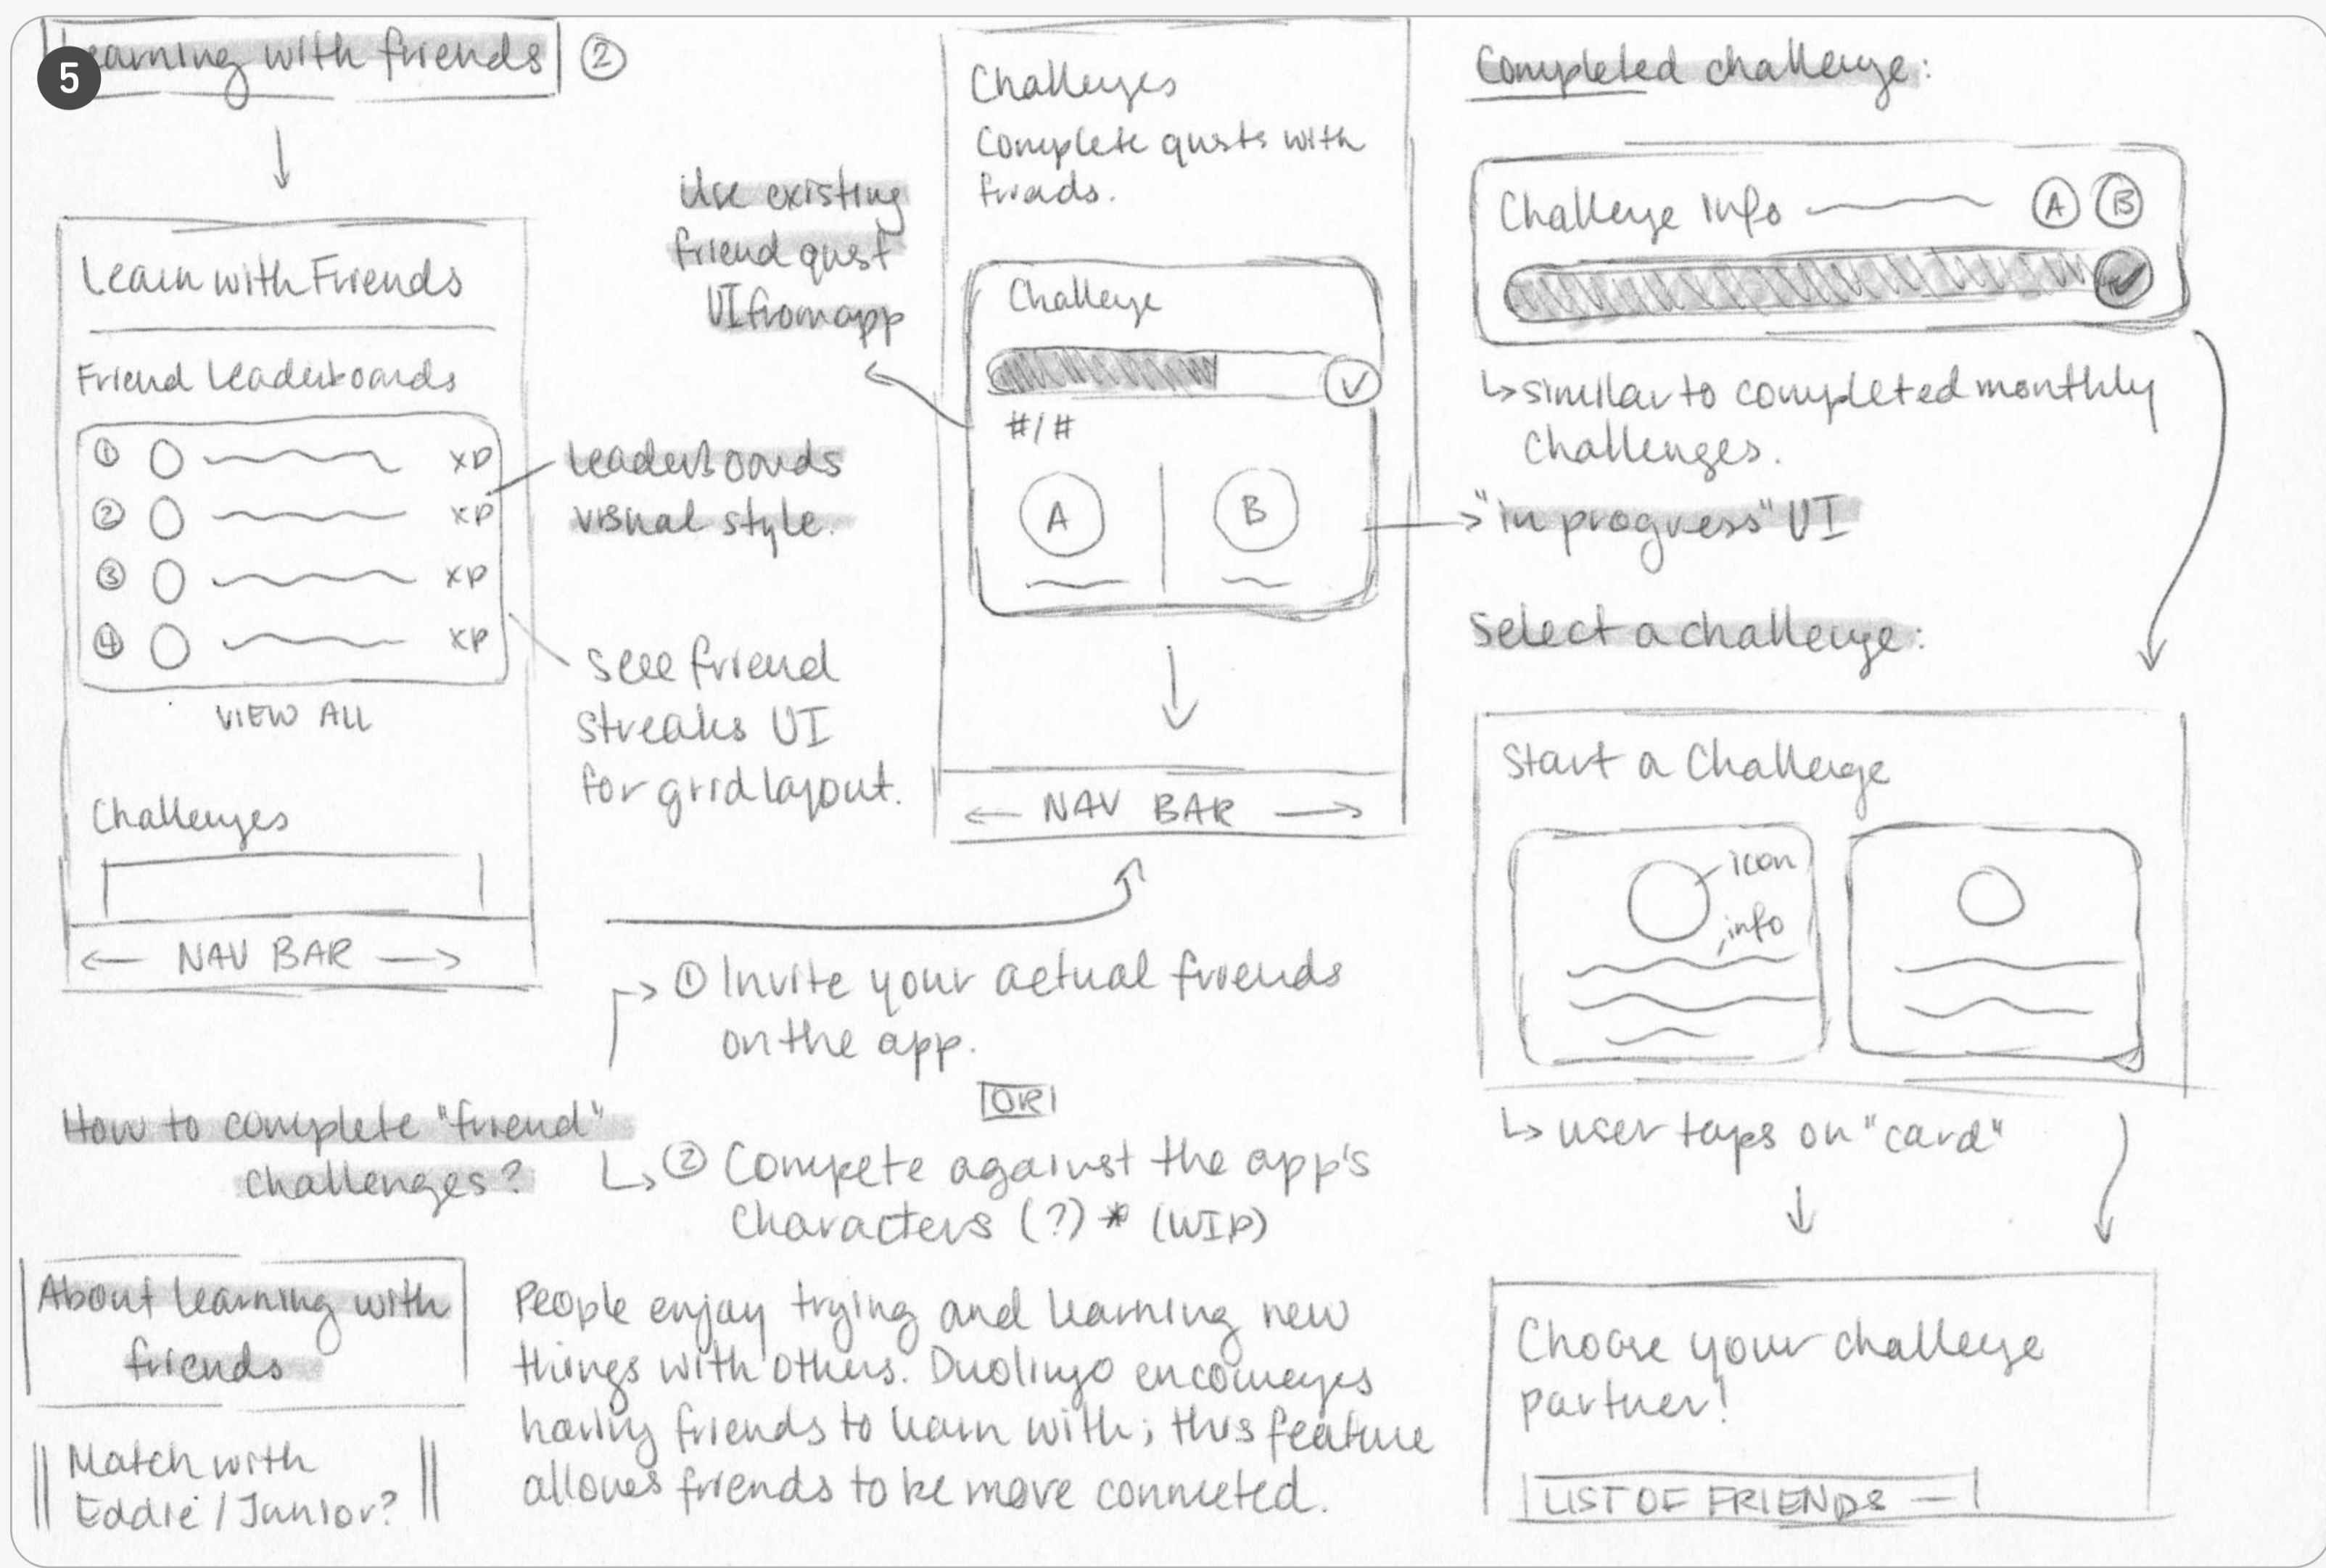 5
Learning with friends ②
Learn with Friends
Friend Leaderboards
① XP
② XP
③ XP
④ XP
VIEW ALL
Challenges
← NAV BAR →
Leaderboards
visual style.
see friend
streaks UI
for grid layout.
Use existing
friend quest
UI from app
Challenges
Complete quests with
friends.
Challenge
#/#
A B
← NAV BAR →
Completed challenge:
Challenge Info A B
↳ similar to completed monthly
challenges.
"in progress" UI
Select a challenge:
Start a Challenge
icon
info
↳ user taps on "card"
Choose your challenge
partner!
LIST OF FRIENDS —
How to complete "friend"
challenges?
① Invite your actual friends
on the app.
OR
② Compete against the app's
characters (?) * (WIP)
About learning with
friends
Match with
Eddie / Junior?
People enjoy trying and learning new
things with others. Duolingo encourages
having friends to learn with; this feature
allows friends to be more connected.